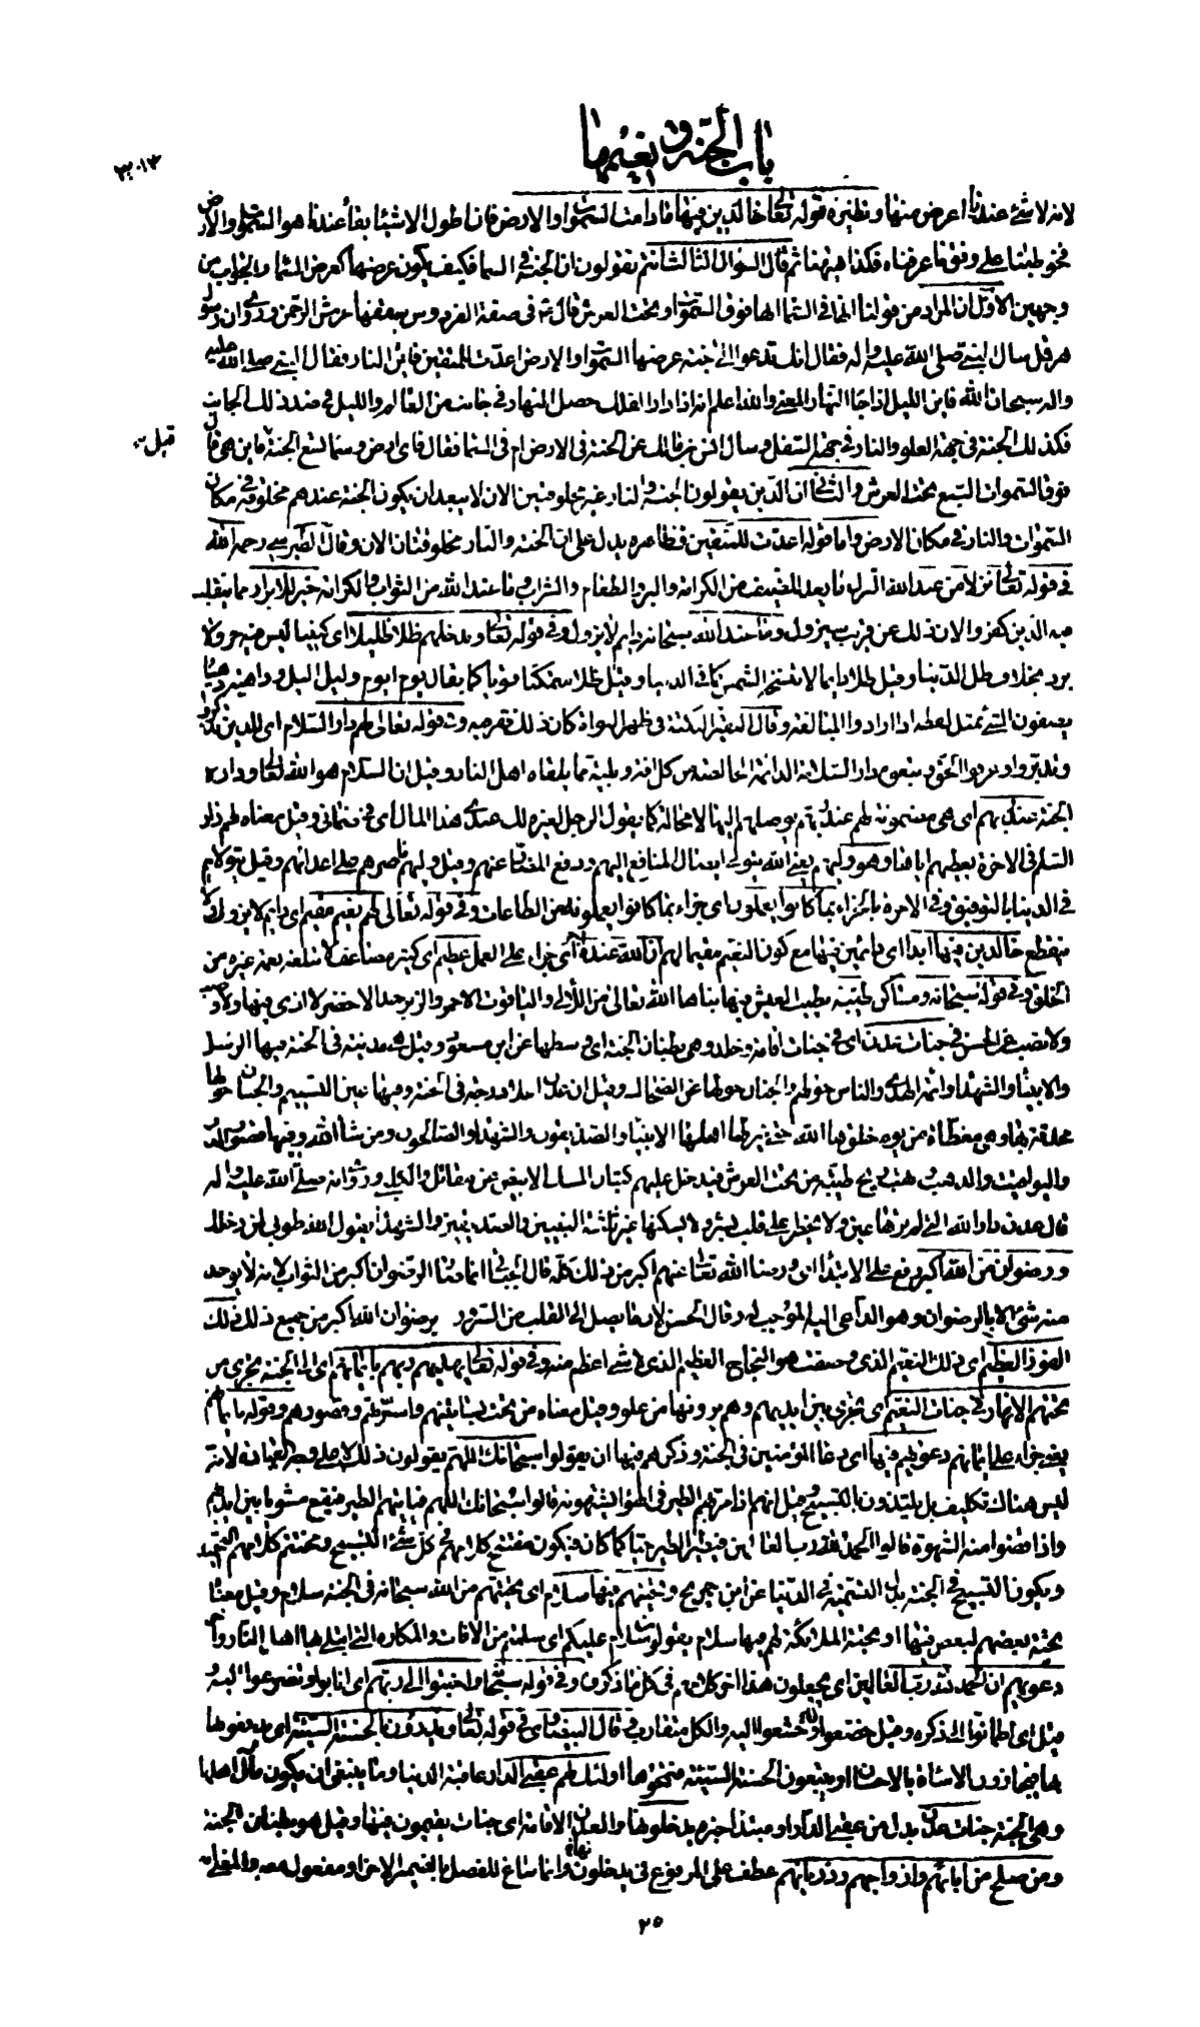 باب الجنة و نعيمها
لانه لا شئ عندنا اعرض منها و نظيره قوله تعالى خالدين فيها ما دامت السموات والارض فان اطول الاشياء بقاء عندنا هو السموات والارض
فخوطبنا على وفق ما عرفناه فكذا هيهنا ثم قال السؤال الثالث انتم تقولون ان الجنة في السماء فكيف يكون عرضها كعرض السماء والجواب من
وجهين الاول ان المراد من قولنا انها في السماء انها فوق السموات و تحت العرش قال ع في صفة الفردوس سقفها عرش الرحمن و روي ان رسول
هرقل سال النبي صلى الله عليه و اله فقال انك تدعو الى جنة عرضها السموات والارض اعدت للمتقين فاين النار فقال النبي صلى الله عليه
واله سبحان الله فاين الليل اذا جاء النهار المعنى والله اعلم انه اذا دار الفلك حصل النهار في جانب من العالم والليل في ضد ذلك الجانب
فكذلك الجنة في جهة العلو والنار في جهة السفل و سال انس بن مالك عن الجنة في الارض ام في السماء فقال فاي ارض و سماء تسع الجنة قيل فاين هي قال
فوق السموات السبع تحت العرش والثاني ان الذين يقولون الجنة والنار غير مخلوقتين الان لا يبعد ان يكون الجنة عندهم مخلوقة في مكان
السموات والنار في مكان الارض و اما قوله اعدت للمتقين فظاهره يدل على ان الجنة والنار مخلوقتان الان و قال الطبرسي رحمه الله
في قوله تعالى نزلا من عند الله النزل ما يعد للضيف من الكرامة والبر والطعام والشراب و ما عند الله من الثواب والكرامة خير للابرار مما يتقلب
فيه الذين كفروا لان ذلك عن قريب سيزول و ما عند الله سبحانه دايم لا يزول و في قوله تعالى و يدخلهم ظلا ظليلا اي كنينا ليس فيه حر ولا
برد بخلاف ظل الدنيا و قيل ظلا دايما لا تنسخه الشمس كما في الدنيا و قيل ظلا متمكنا قويا كما يقال يوم ايوم و ليل اليل و داهية دهياء
يصفون الشئ بمثل لفظه اذا ارادوا المبالغة و قال
و تدبروا و عرفوا الحق و تبعوه دار السلامة الدائمة الخالصة من كل افة و بلية مما يلقاه اهل النار و قيل ان السلام هو الله تعالى و داره
الجنة عند ربهم اي هي مضمونة لهم عند ربهم يوصلهم اليها لا محالة كما يقول الرجل لغيره لك عندي هذا المال اي في ضماني و قيل معناه لهم دار
السلام في الاخرة يعطيهم اياها و هو وليهم يعني الله يتولى ايصال المنافع اليهم و دفع المضار عنهم و قيل وليهم ناصرهم على اعدائهم و قيل يتولاهم
في الدنيا بالتوفيق و في الاخرة بالجزاء بما كانوا يعملون اي جزاء بما كانوا يعملونه من الطاعات و في قوله تعالى لهم نعيم مقيم اي دايم لا يزول ولا
ينقطع خالدين فيها ابدا اي دائمين فيها مع كون النعيم مقيما لهم ان الله عنده اجر اي جزاء على العمل عظيم اي كثير مضاعف لا تبلغه نعمة غيره من
الخلق و في قوله سبحانه و مساكن طيبة يطيب العيش فيها بناها الله تعالى من اللآلي والياقوت الاحمر والزبرجد الاخضر لا اذى فيها ولا وصب
ولا نصب عن الحسن في جنات عدن اي في جنات اقامة و خلد و هي بطنان الجنة اي وسطها عن ابن مسعود و قيل هي مدينة في الجنة فيها الرسل
والانبياء والشهداء و ائمة الهدى والناس حولهم والجنان حولها عن الضحاك و قيل ان عدن اعلا درجة في الجنة و فيها عين التسنيم والجنان حولها
محدقة بها و هي مغطاة من يوم خلقها الله حتى ينزلها اهلها الانبياء والصديقون والشهداء والصالحون و من شاء الله و فيها قصور الدر
واليواقيت والذهب فتهب ريح طيبة من تحت العرش فيدخل عليهم كثبان المسك الابيض عن مقاتل والكلبي و روي انه صلى الله عليه و اله
قال عدن دار الله التي لم ترها عين ولا يخطر على قلب بشر ولا يسكنها غير ثلثة النبيين والصديقين والشهداء يقول الله طوبى لمن دخلك
و رضوان من الله اكبر رفع على الابتداء اي و رضا الله تعالى عنهم اكبر من ذلك كله قال الجبائي انما صار الرضوان اكبر من الثواب لانه لا يوجد
منه شئ الا بالرضوان و هو الداعي اليه الموجب له و قال الحسن لان ما يصل الى القلب من السرور برضوان الله اكبر من جميع ذلك ذلك
الفوز العظيم اي ذلك النعيم الذي وصفت هو النجاح العظيم الذي لا شئ اعظم منه و في قوله تعالى يهديهم ربهم بايمانهم اي الى الجنة تجري من
تحتهم الانهار في جنات النعيم اي تجري بين ايديهم و هم يرونها من علو و قيل معناه من تحت بساتينهم و اسرتهم و قصورهم و قوله بايمانهم
يعني جزاء على ايمانهم دعويهم فيها اي دعاء المؤمنين في الجنة و ذكرهم فيها ان يقولوا سبحانك اللهم يقولون ذلك لا على وجه العبادة لانه
ليس هناك تكليف بل يلتذون بالتسبيح و قيل انهم اذا مر بهم الطير في الهواء يشتهونه قالوا سبحانك اللهم فياتيهم الطير فيقع مشويا بين ايديهم
و اذا قضوا منه الشهوة قالوا الحمد لله رب العالمين فيطير الطير حيا كما كان فيكون مفتتح كلامهم في كل شئ التسبيح و مختتم كلامهم التحميد
و يكون التسبيح في الجنة بدل التسمية في الدنيا عن ابن جريح و تحيتهم فيها سلام اي تحيتهم من الله سبحانه في الجنة سلام و قيل معناه
تحية بعضهم لبعض فيها او تحية الملائكة لهم فيها سلام يقولون سلام عليكم اي سلمتم من الافات والمكاره التي ابتلي بها اهل النار و اخر
دعويهم ان الحمد لله رب العالمين اي يجعلون هذا اخر كلامهم في كل ما ذكروه و في قوله سبحانه و اخبتوا الى ربهم اي انابوا و تضرعوا اليه و
قيل اي اطمانوا الى ذكره و قيل خضعوا له و خشعوا اليه والكل متقارب و قال البيضاوي في قوله تعالى و يدرؤن بالحسنة السيئة اي يدفعونها
بها فيجازون الاساءة بالاحسان او يتبعون الحسنة السيئة فتمحوها اولئك لهم عقبى الدار عاقبة الدنيا و ما ينبغي ان يكون مآل اهلها
و هي الجنة جنات عدن بدل من عقبى الدار او مبتدأ خبره يدخلونها والعدن الاقامة اي جنات يقيمون فيها و قيل هو بطنان الجنة
و من صلح من ابائهم و ازواجهم و ذرياتهم عطف على المرفوع في يدخلونها و انما ساغ للفصل بالضمير الاخر او مفعول معه والمعنى انه
٢٥